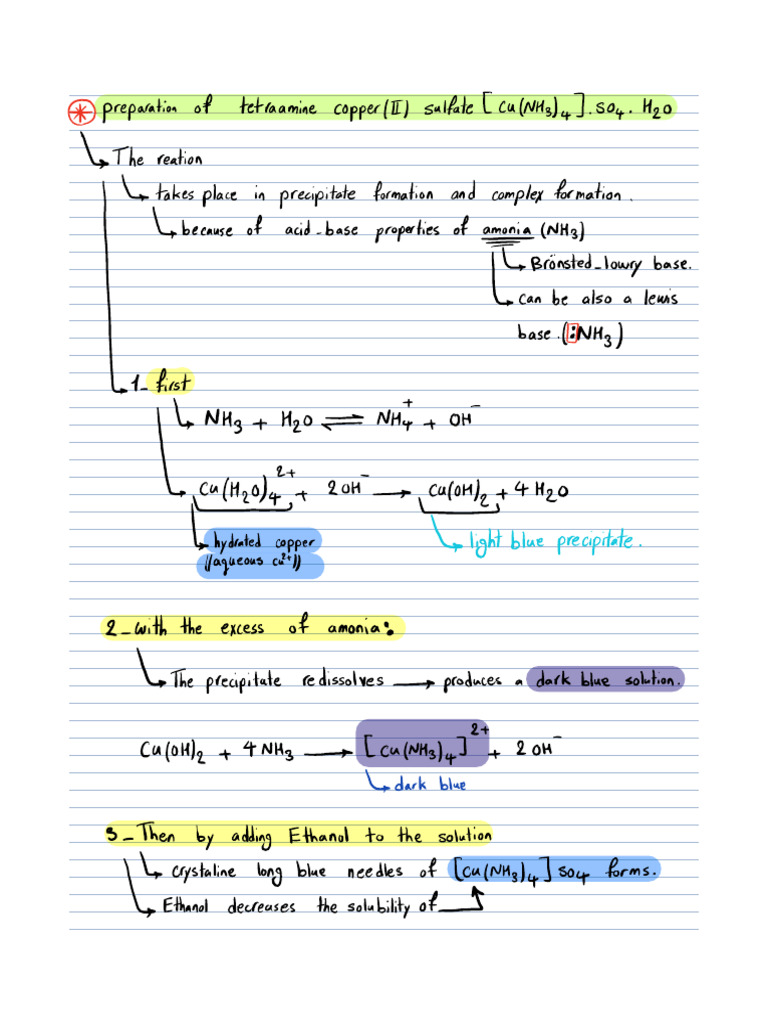 preparation of tetraamine copper(II) sulfate [Cu(NH3)4].SO4.H2O
The reation
takes place in precipitate formation and complex formation.
because of acid-base properties of amonia (NH3)
Brönsted-lowry base.
can be also a lewis
base.(:NH3)
1- first
NH3 + H2O ⇌ NH4+ + OH-
Cu(H2O)4 2+ + 2OH- → Cu(OH)2 + 4H2O
hydrated copper
light blue precipitate.
((aqueous cu2+))
2-with the excess of amonia:
The precipitate redissolves → produces a dark blue solution.
Cu(OH)2 + 4NH3 → [Cu(NH3)4]2+ + 2OH-
dark blue
3-Then by adding Ethanol to the solution
crystaline long blue needles of [Cu(NH3)4]SO4 forms.
Ethanol decreases the solubility of